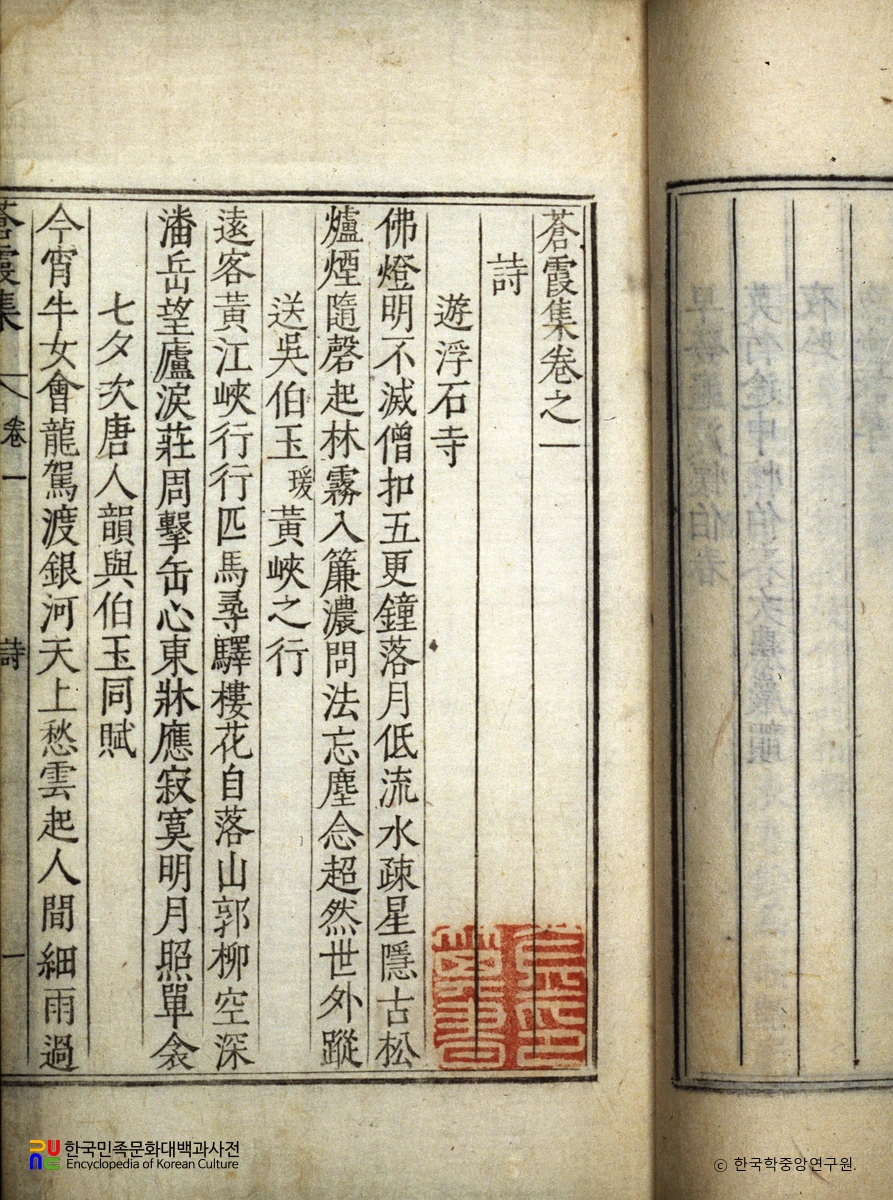 蒼霞集卷之一
詩
遊浮石寺
佛燈明不滅僧扣五更鐘落月低流水疎星隱古松
爐煙隨磬起林霧入簾濃問法忘塵念超然世外蹤
送吳伯玉瑗黃峽之行
遠客黃江峽行行匹馬尋驛樓花自落山郭柳空深
潘岳望廬淚莊周擊缶心東牀應寂寞明月照單衾
七夕次唐人韻與伯玉同賦
今宵牛女會龍駕渡銀河天上愁雲起人間細雨過
蒼霞集 卷一 詩 一
한국민족문화대백과사전
Encyclopedia of Korean Culture
ⓒ 한국학중앙연구원.